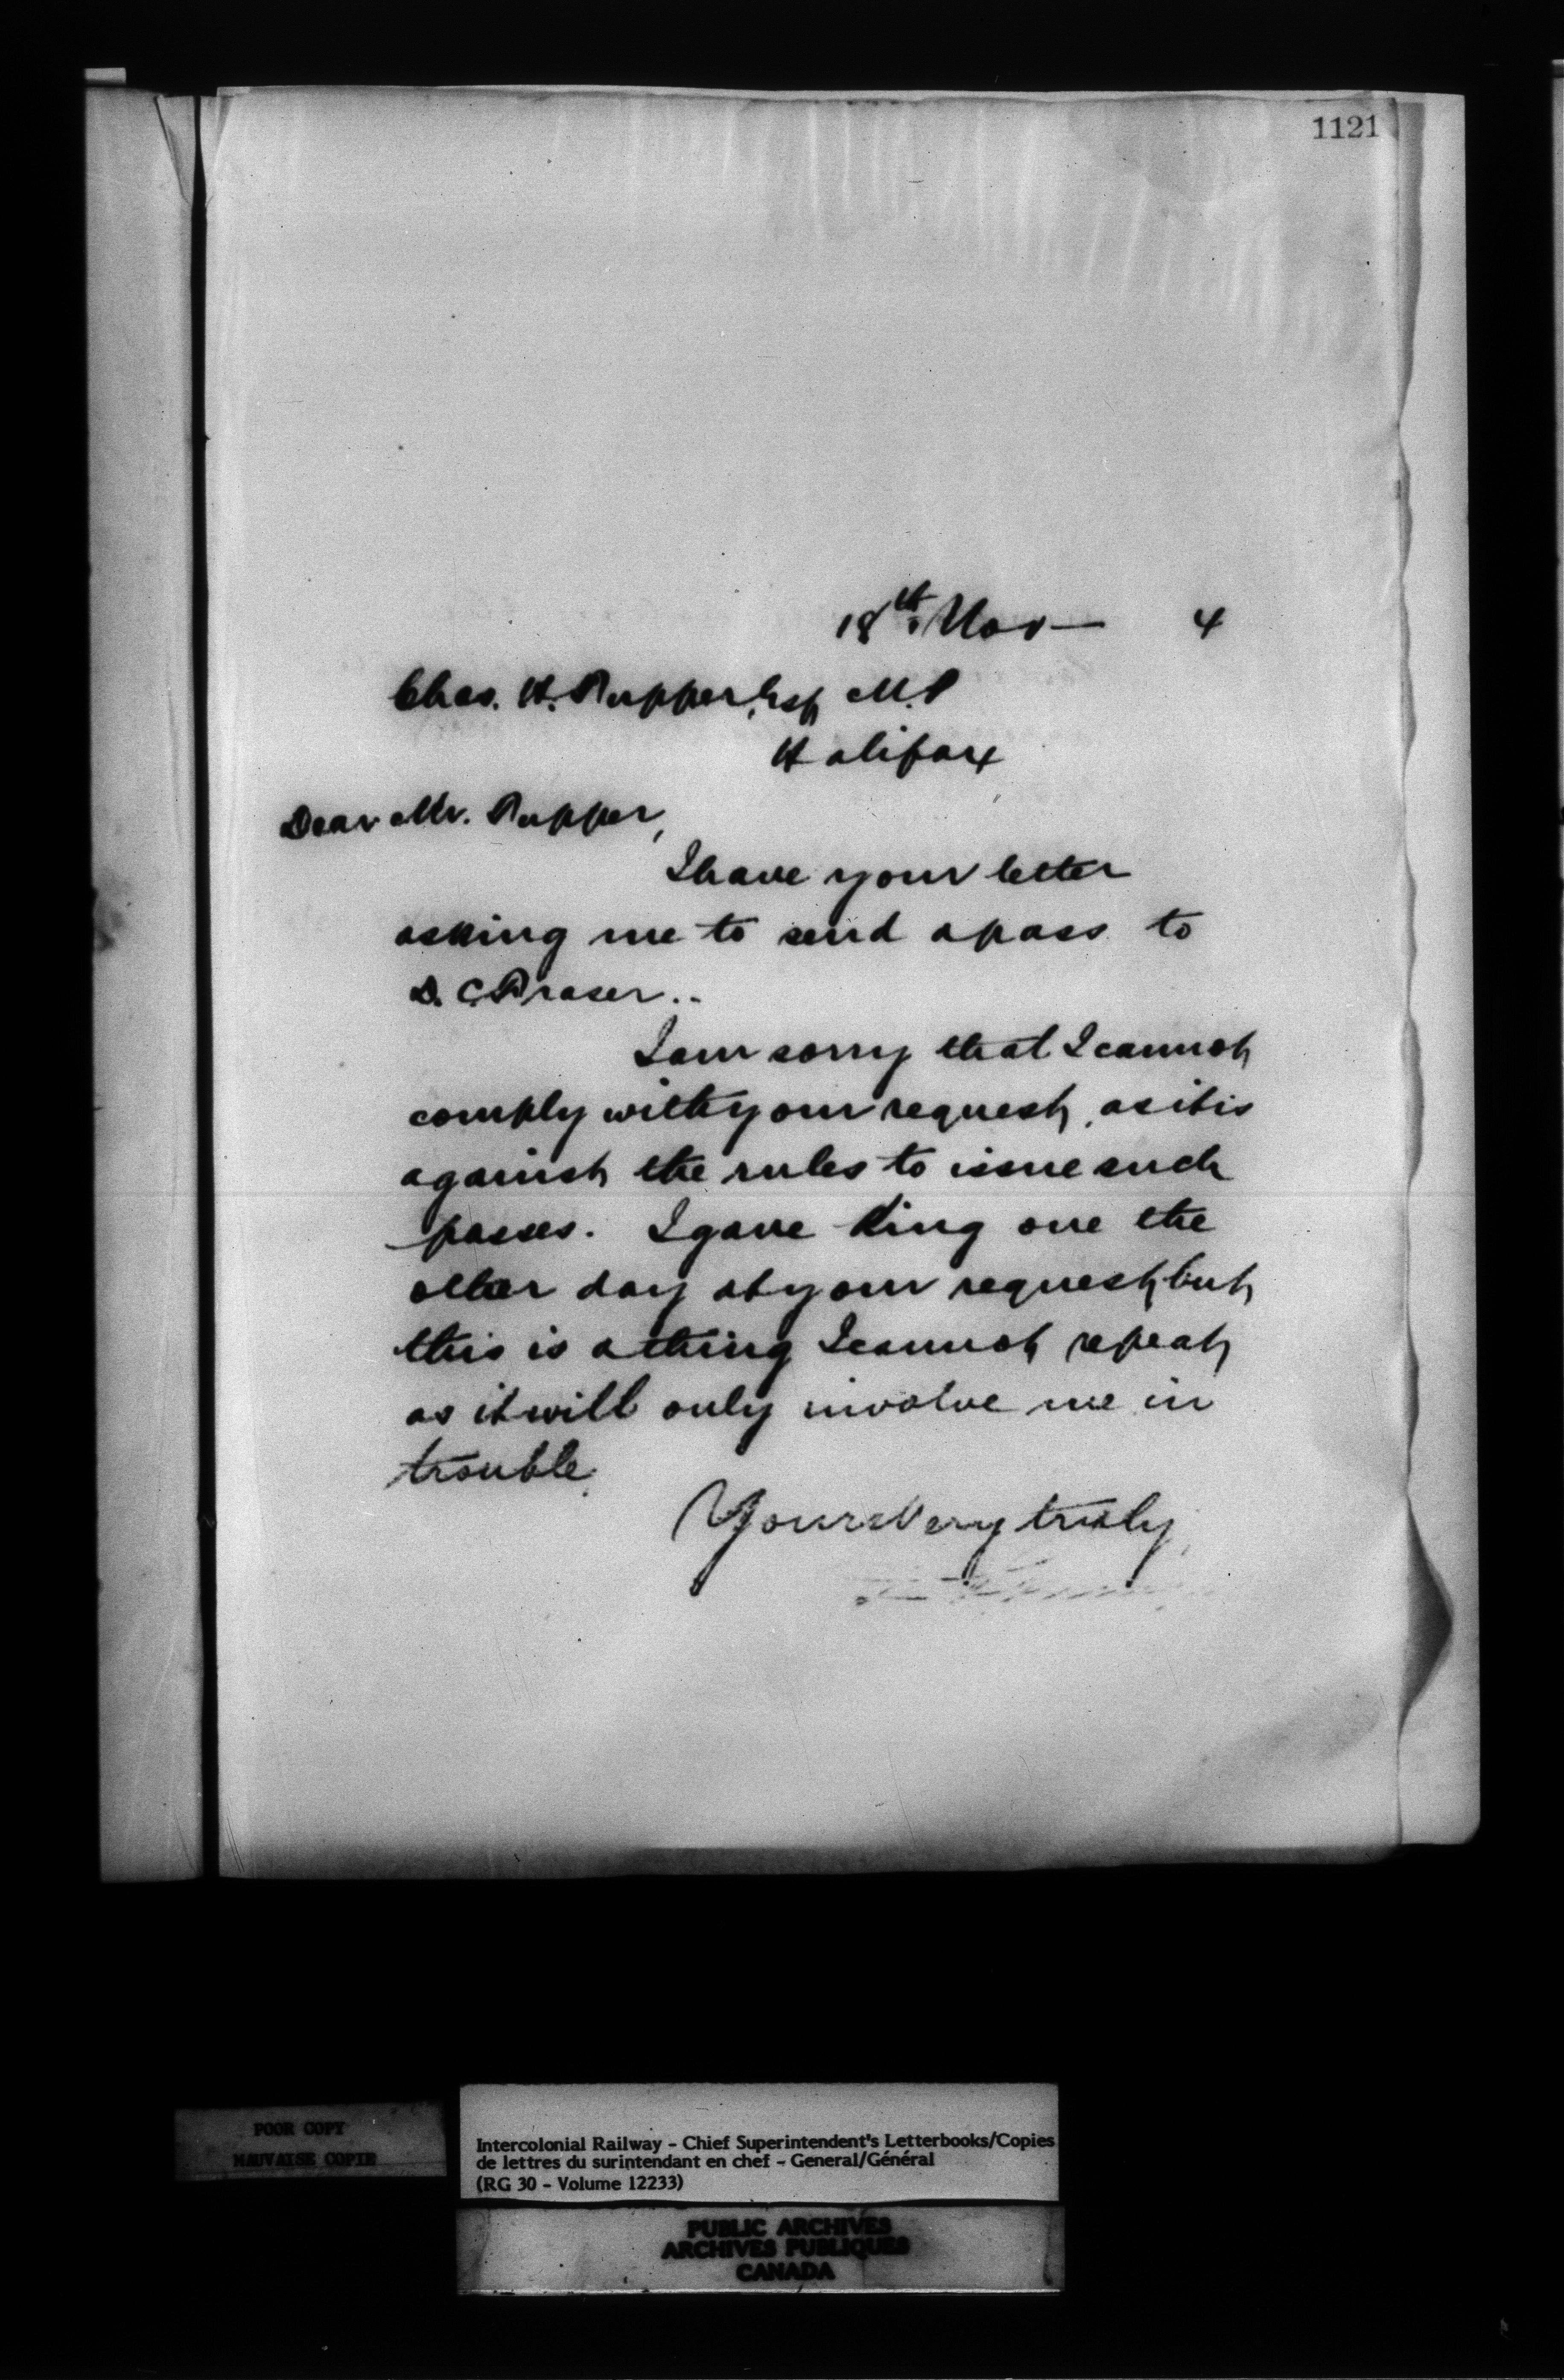 1121
18th. Nov— 4
Chas. H. Tupper, Esq M.P
Halifax
Dear Mr. Tupper,
I have your letter
asking me to send a pass to
D. C. Fraser..
I am sorry that I cannot
comply with your request, as it is
against the rules to issue such
passes. I gave King one the
other day at your request, but
this is a thing I cannot repeat
as it will only involve me in
trouble.
Yours Very truly,
POOR COPY
MAUVAISE COPIE
Intercolonial Railway - Chief Superintendent's Letterbooks/Copies
de lettres du surintendant en chef - General/Général
(RG 30 - Volume 12233)
PUBLIC ARCHIVES
ARCHIVES PUBLIQUES
CANADA